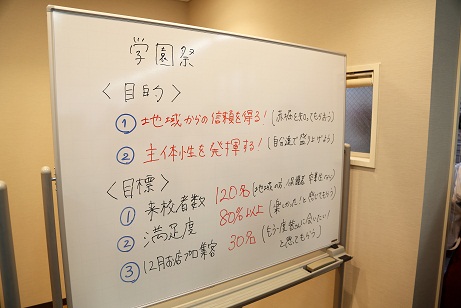 学園祭
<目的>
① 地域からの信頼を得る! (赤堀を知ってもらおう)
② 主体性を発揮する! (自分達で盛り上げよう)
<目標>
① 来校者数 120名 (地域の方、保護者、卒業生など)
② 満足度 80%以上 (楽しかった!と感じてもらう)
③ 12月お店プロ集客 30名 (もう一度皆さんに会いたい!と思ってもらう)